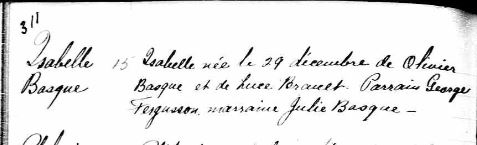 311
Isabelle 15 Isabelle née le 29 décembre de Olivier
Basque Basque et de Luce Brauet. Parrain George
Fergusson, marraine Julie Basque —